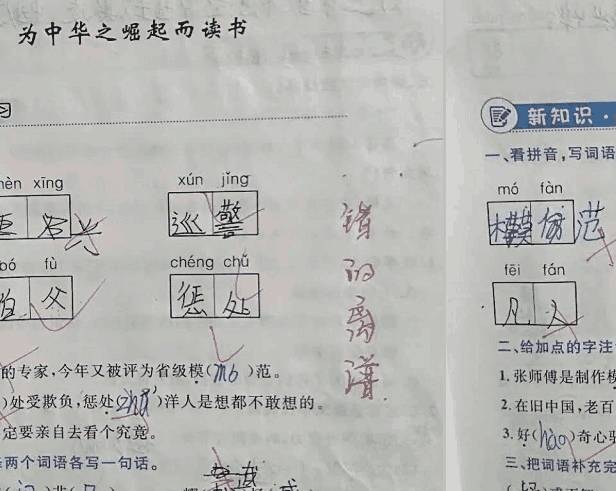 为中华之崛起而读书
习
xīng
xún jǐng
巡 警
错的离谱
fù
chéng chǔ
父
惩 处
的专家,今年又被评为省级模(mó)范。
)处受欺负,惩处(chǔ)洋人是想都不敢想的。
定要亲自去看个究竟。
两个词语各写一句话。
新知识·
一、看拼音,写词语
mó fàn
模 仿 范
fēi fán
凡 人
二、给加点的字注
1.张师傅是制作模
2.在旧中国,老百
3.好(hào)奇心驱
三、把词语补充完